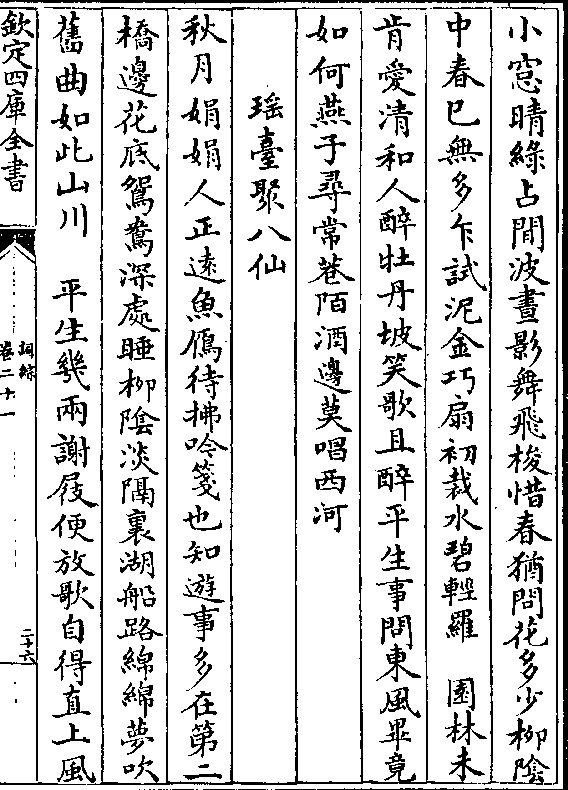 小窓晴綠占閒波晝影舞飛梭惜春猶問花多少柳陰
中春已無多乍試泥金巧扇初裁水碧輕羅　園林未
肯愛清和人醉牡丹坡笑歌且醉平生事問東風畢竟
如何燕子尋常巷陌酒邊莫唱西河
瑶臺聚八仙
秋月娟娟人正遠魚鴈待拂吟箋也知遊事多在第二
橋邊花底鴛鴦深處睡柳陰淡隔裏湖船路綿綿夢吹
舊曲如此山川　平生幾兩謝屐便放歌自得直上風
欽定四庫全書
詞綜
卷二十一
二十六